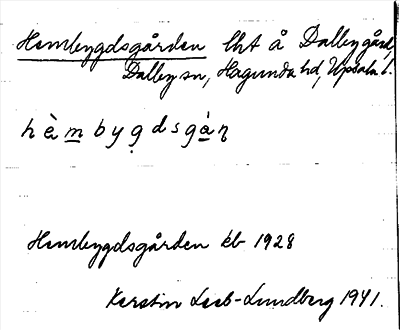 Hembygdsgården lht å Dalby gård,
Dalby sn, Hagunda hd, Upsala l.
hèmbygdsgáṇ
Hembygdsgården kb 1928
Kerstin Leeb-Lundberg 1941.